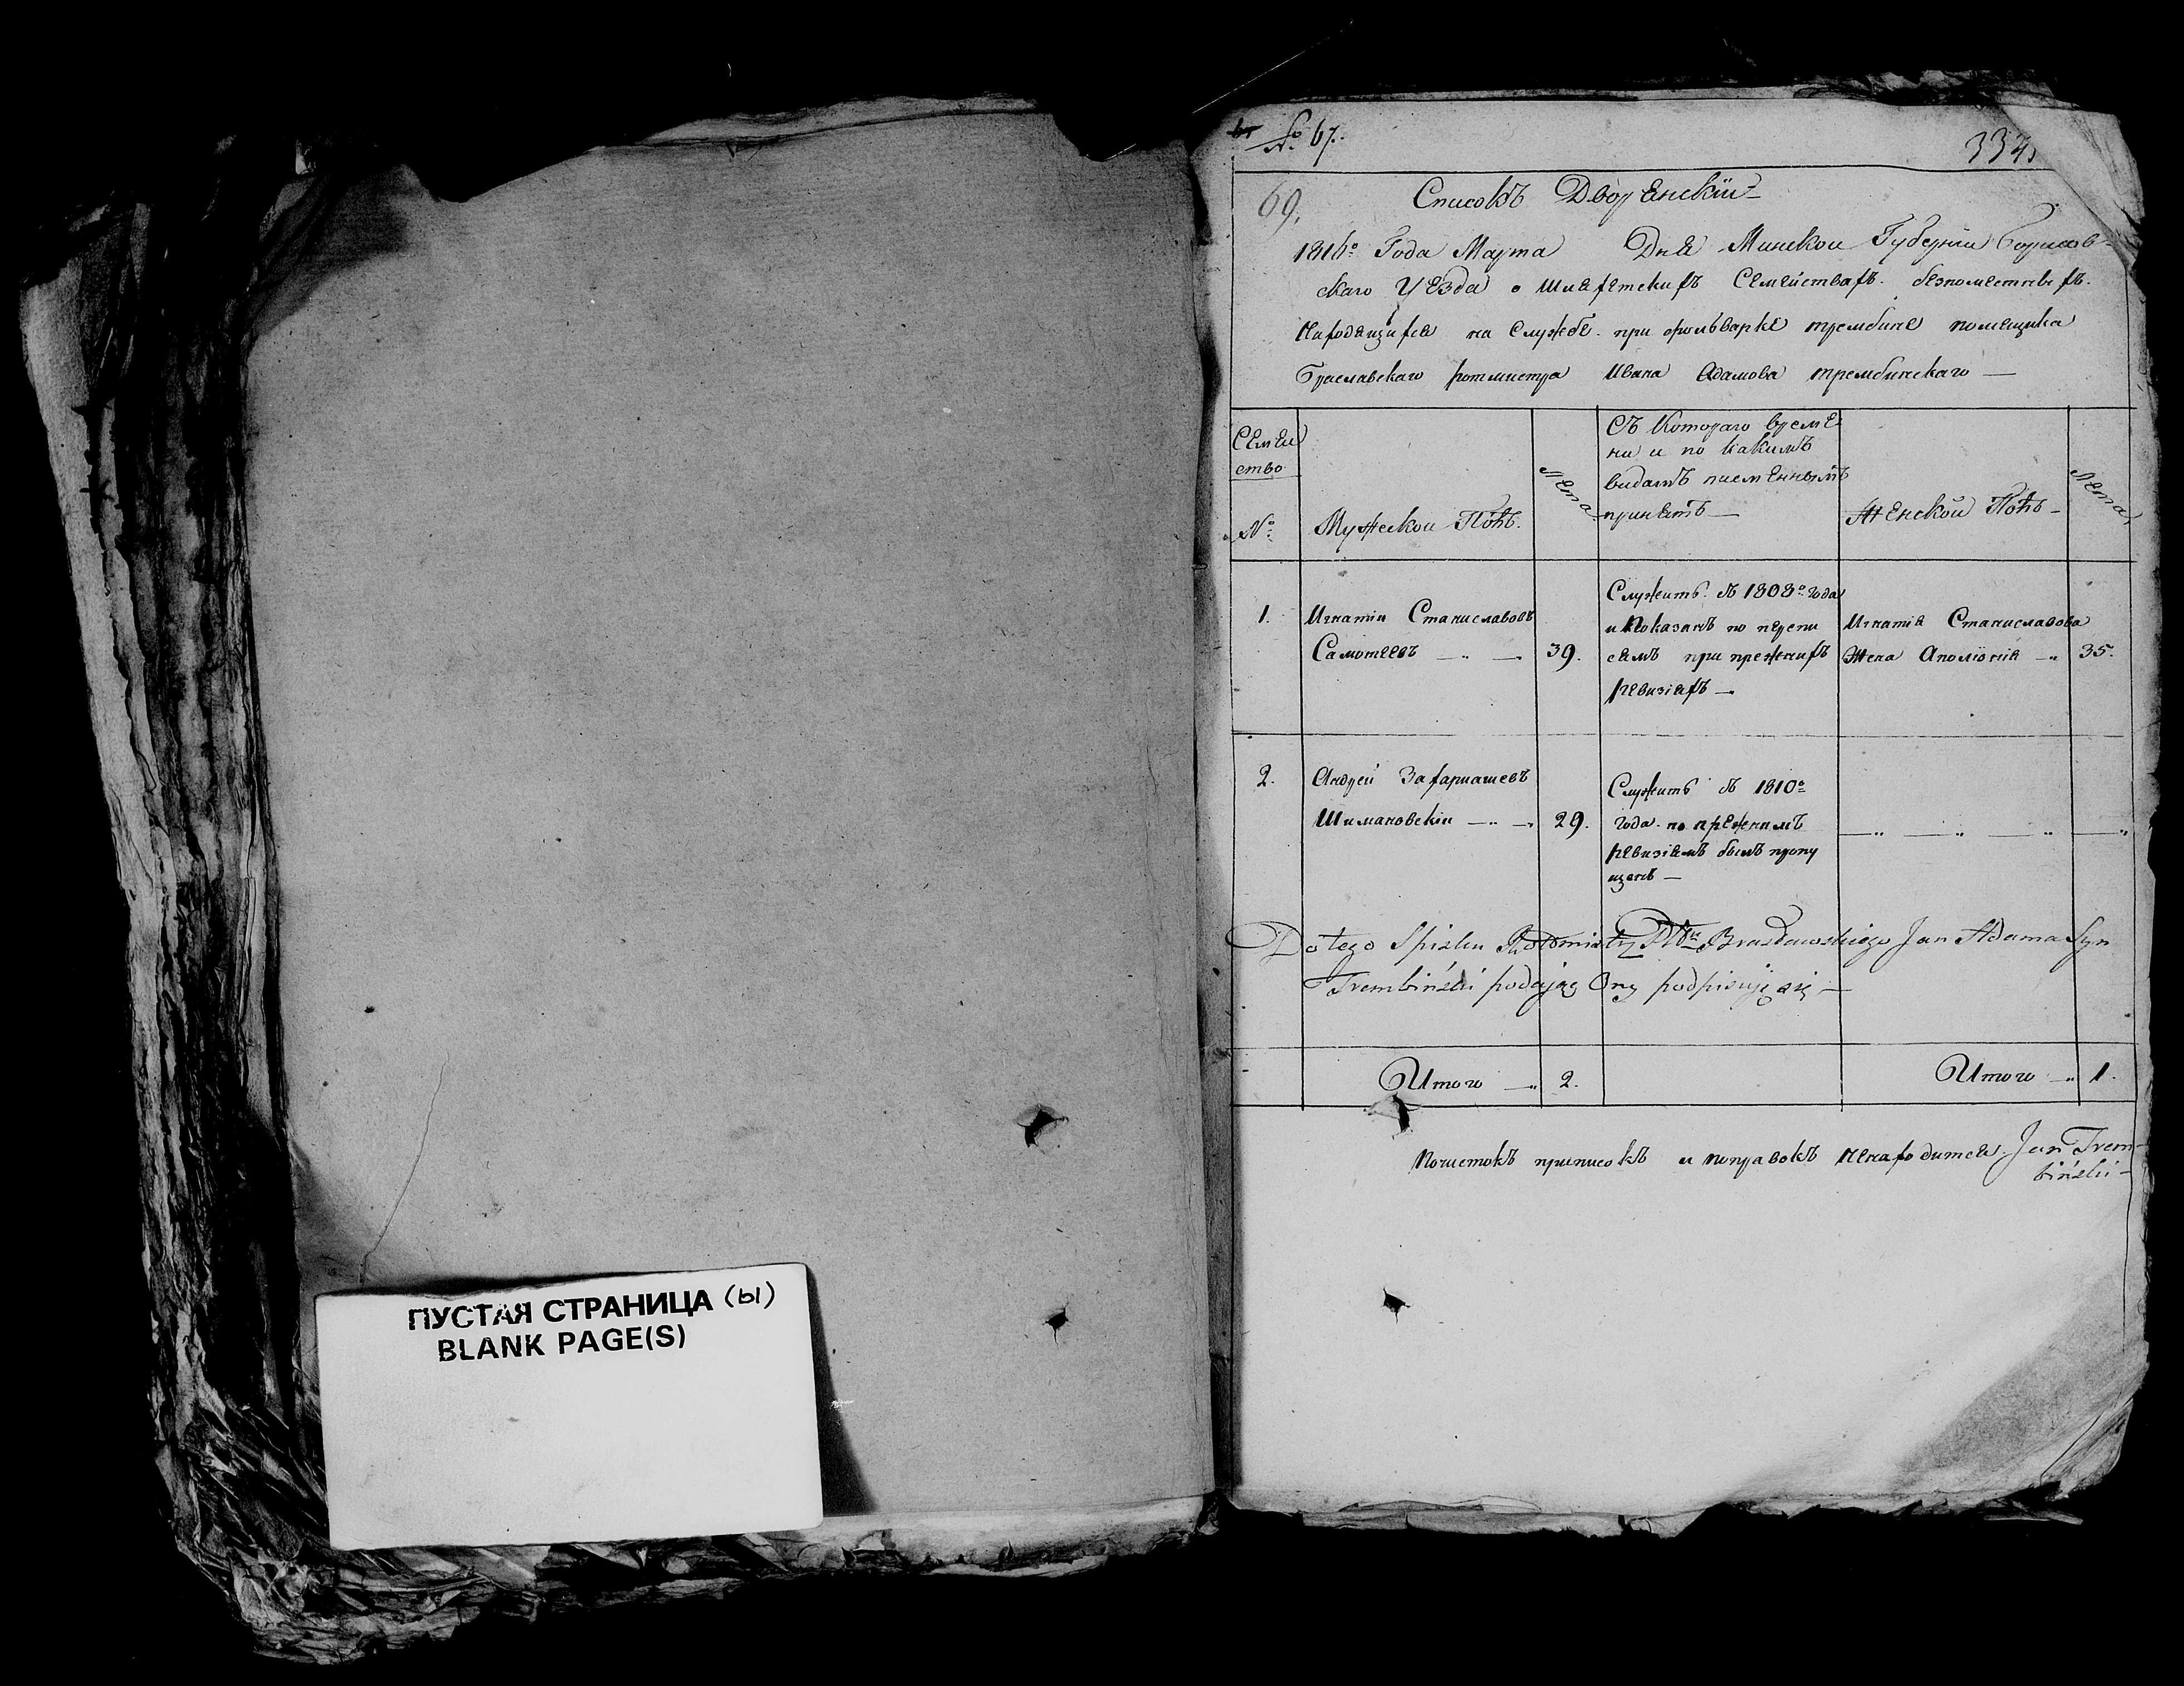 ПУСТАЯ СТРАНИЦА (ы)
BLANK PAGE(S)
№ 67.
69.
Списокъ Дворенскіи
1816º Года Марта Дня Минскои Губерніи Борисов-
скаго Уезда о Шляхетскихъ Семействахъ безпоместныхъ
Находящихся на Службе при фольварке трембине помещика
Браславскаго ротмистра Ивана Адамова трембинскаго —
Семеи
ство
№
Мужескои Полъ.
Лета
Съ Котораго време
ни и по какимъ
видамъ писменнымъ
принетъ —
Женской Полъ —
Лета
1.
Игнатіи Станиславовъ
Самотеевъ — 39.
Служитъ съ 1808º года
и Показанъ по перепи
самъ при прежнихъ
ревизіяхъ —
Игнатія Станиславова
Жена Аполіонія — 35.
2.
Андреи Захаріашевъ
Шимановскіи — 29.
Служитъ съ 1810º
года по прежнимъ
ревизіямъ былъ пропу
щенъ —
Do tego Spisku Rotmistrz Ptu Brasławskiego Jan Adama Syn
Trembiński podając Ony podpisuję się —
Итого — 2.
Итого — 1.
Почистокъ приписокъ и поправокъ ненаходится Jan Trem-
biński —